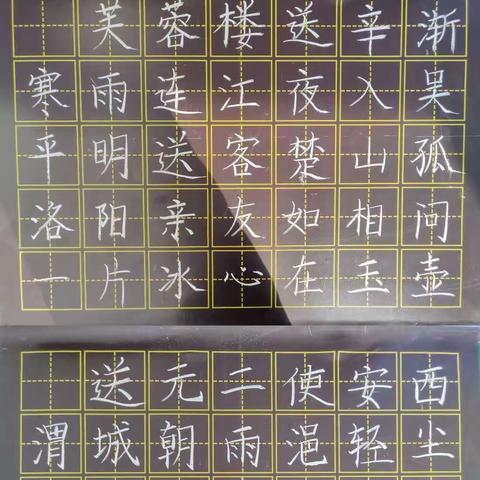 芙蓉楼送辛渐
寒雨连江夜入吴
平明送客楚山孤
洛阳亲友如相问
一片冰心在玉壶
送元二使安西
渭城朝雨浥轻尘